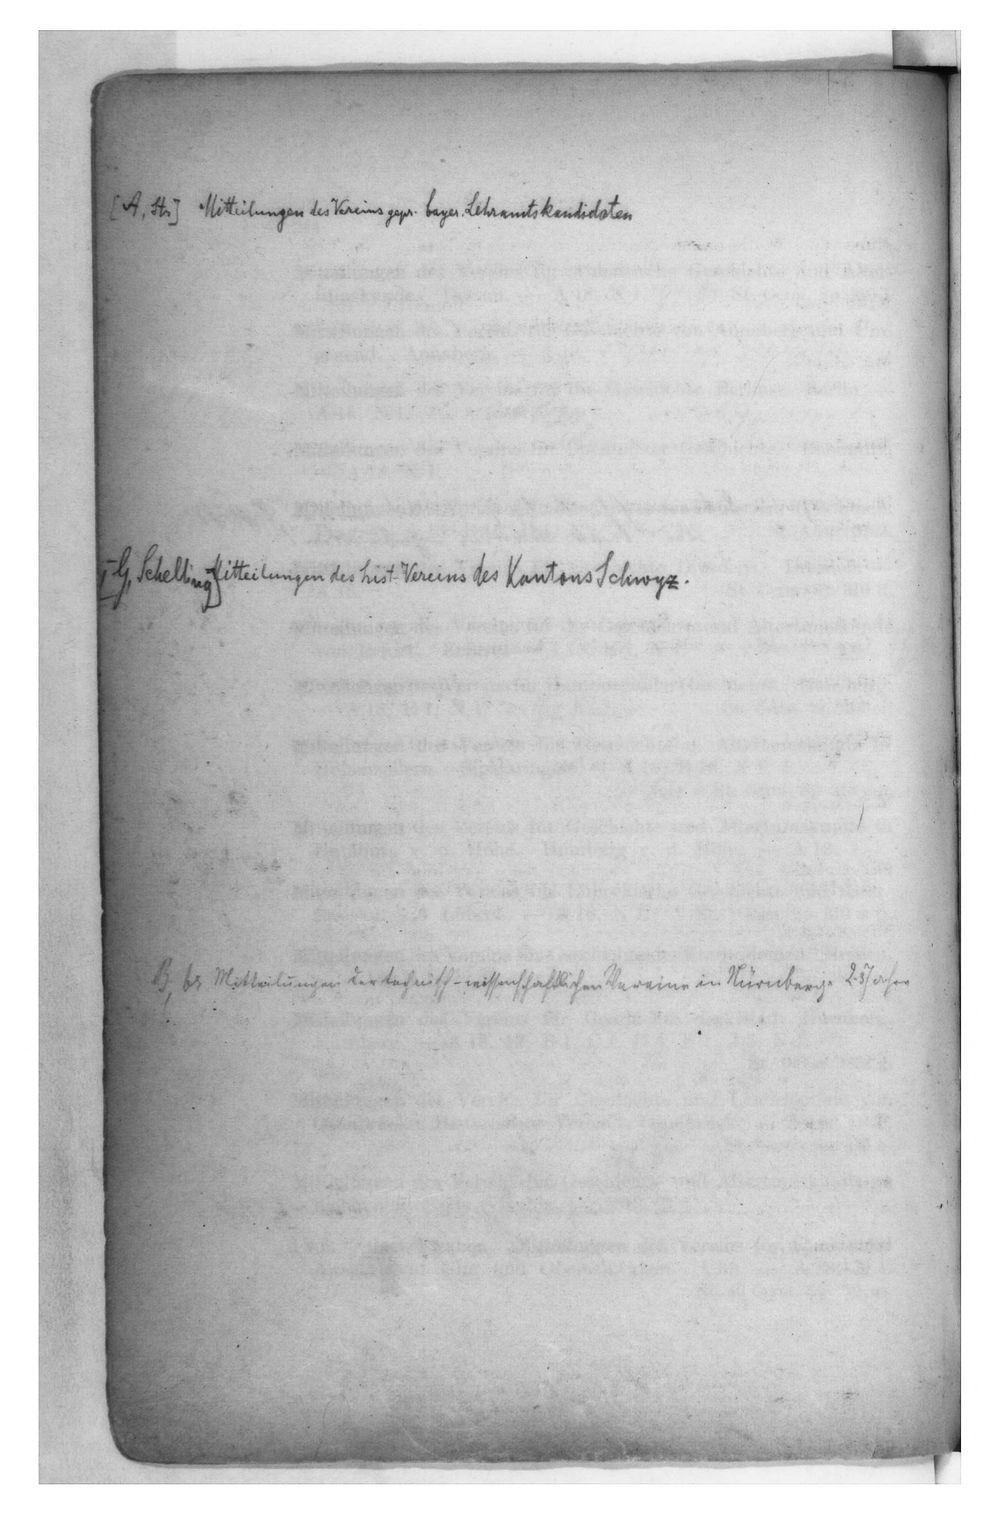 [A, Str] Mitteilungen des Vereins gepr. bayer. Lehramtskandidaten
[G. Schelling] Mitteilungen des hist. Vereins des Kantons Schwyz.
B, Mitteilungen der technisch-wissenschaftlichen Vereine in Nürnberg.